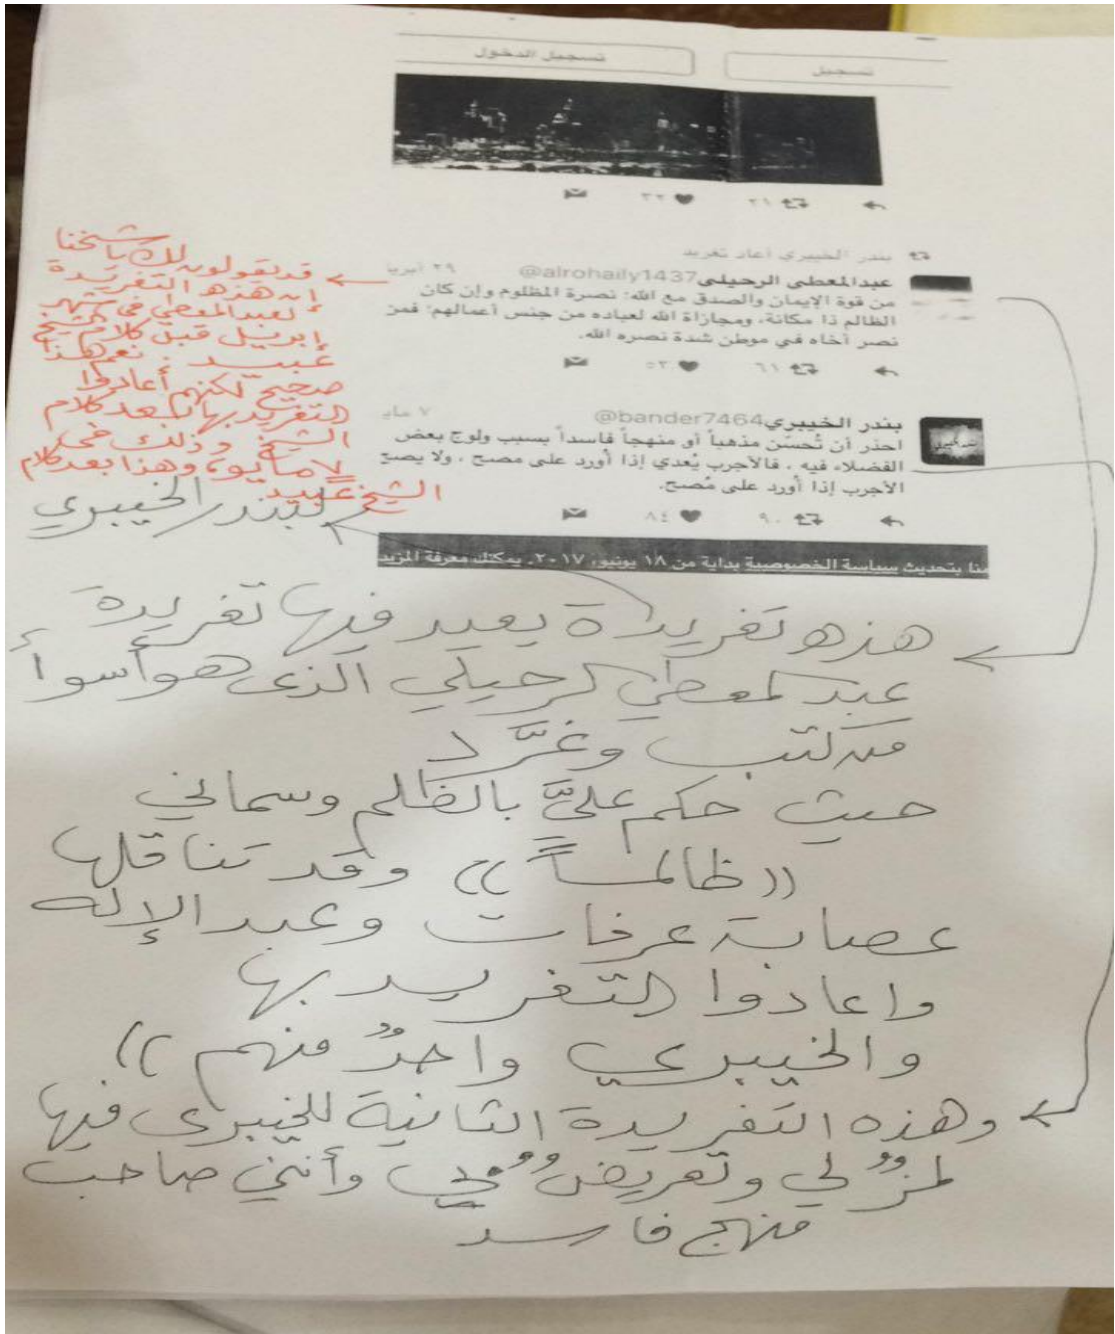 تسجيل
تسجيل الدخول
٢١
٣٢
بندر الخيبري أعاد تغريد
عبدالمعطي الرحيلي @alrohaily1437
٢٩ أبريل
من قوة الإيمان والصدق مع الله: نصرة المظلوم وإن كان
الظالم ذا مكانة، ومجازاة الله لعباده من جنس أعمالهم: فمن
نصر أخاه في موطن شدة نصره الله.
٦١
٥٣
بندر الخيبري @bander7464
٧ مايو
احذر أن تُحسّن مذهباً أو منهجاً فاسداً بسبب ولوج بعض
الفضلاء فيه ، فالأجرب يُعدي إذا أورد على مصح ، ولا يصح
الأجرب إذا أورد على مُصح.
٩٠
٨٤
منا بتحديث سياسة الخصوصية بداية من ١٨ يونيو، ٢٠١٧. يمكنك معرفة المزيد
قد يقولون لك يا شيخنا
إن هذه التغريدة
لعبدالمعطي في شهر
إبريل قبل كلام الشيخ
عبيد . نعم هذا
صحيح لكنهم أعادوا
التغريد بها بعد كلام
الشيخ وذلك في
٧ مايو، وهذا بعد كلام
الشيخ عبيد
لبندر الخيبري
هذه تغريدة يعيد فيها تغريدة
عبد المعطي الرحيلي الذي هو أسوأ
من كتب وغَرَّد
حيث حكم عليَّ بالظلم وسماني
((ظالماً)) وقد تناقلها
عصابة عرفات وعبد الإله
واعادوا التغريد بها
والخيبري واحدٌ منهم ))
وهذه التغريدة الثانية للخيبري فيها
لمزٌ لي وتعريضٌ بي وأنني صاحب
منهج فاسد